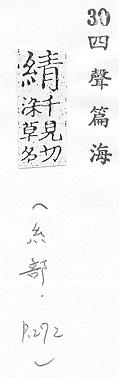 30
四聲篇海
綪千見切
染草名
（糸部．
P.272）